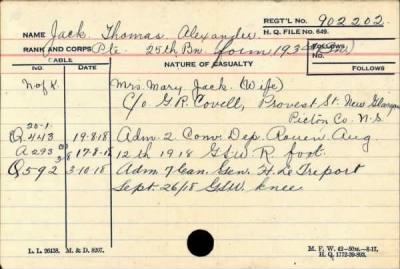 REGT'L NO. 902202
NAME Jack, Thomas Alexander H. Q. FILE NO. 649.
RANK AND CORPS Pte. 25th Bn. form
CABLE NATURE OF CASUALTY FOLLOWS
NO. DATE FOLLOWS
N of K. Mrs. Mary Jack (Wife)
C/o G. R. Covell, Provest St. New Glasgow
Pictou Co. N.S.
20-1
Q.443 19-8-18 Adm. 2 Conv. Dep. Rouen Aug
A 293 17-8-18 12th 1918 G.S.W. R foot.
Q592 3-10-18 Adm. 7 Can. Gen. H. Le Treport
Sept. 26/18 GSW. knee
L. L. 26438. M. & D. 8207.
M. F. W. 42—50M.—8-17.
H. Q. 1772-39-893.